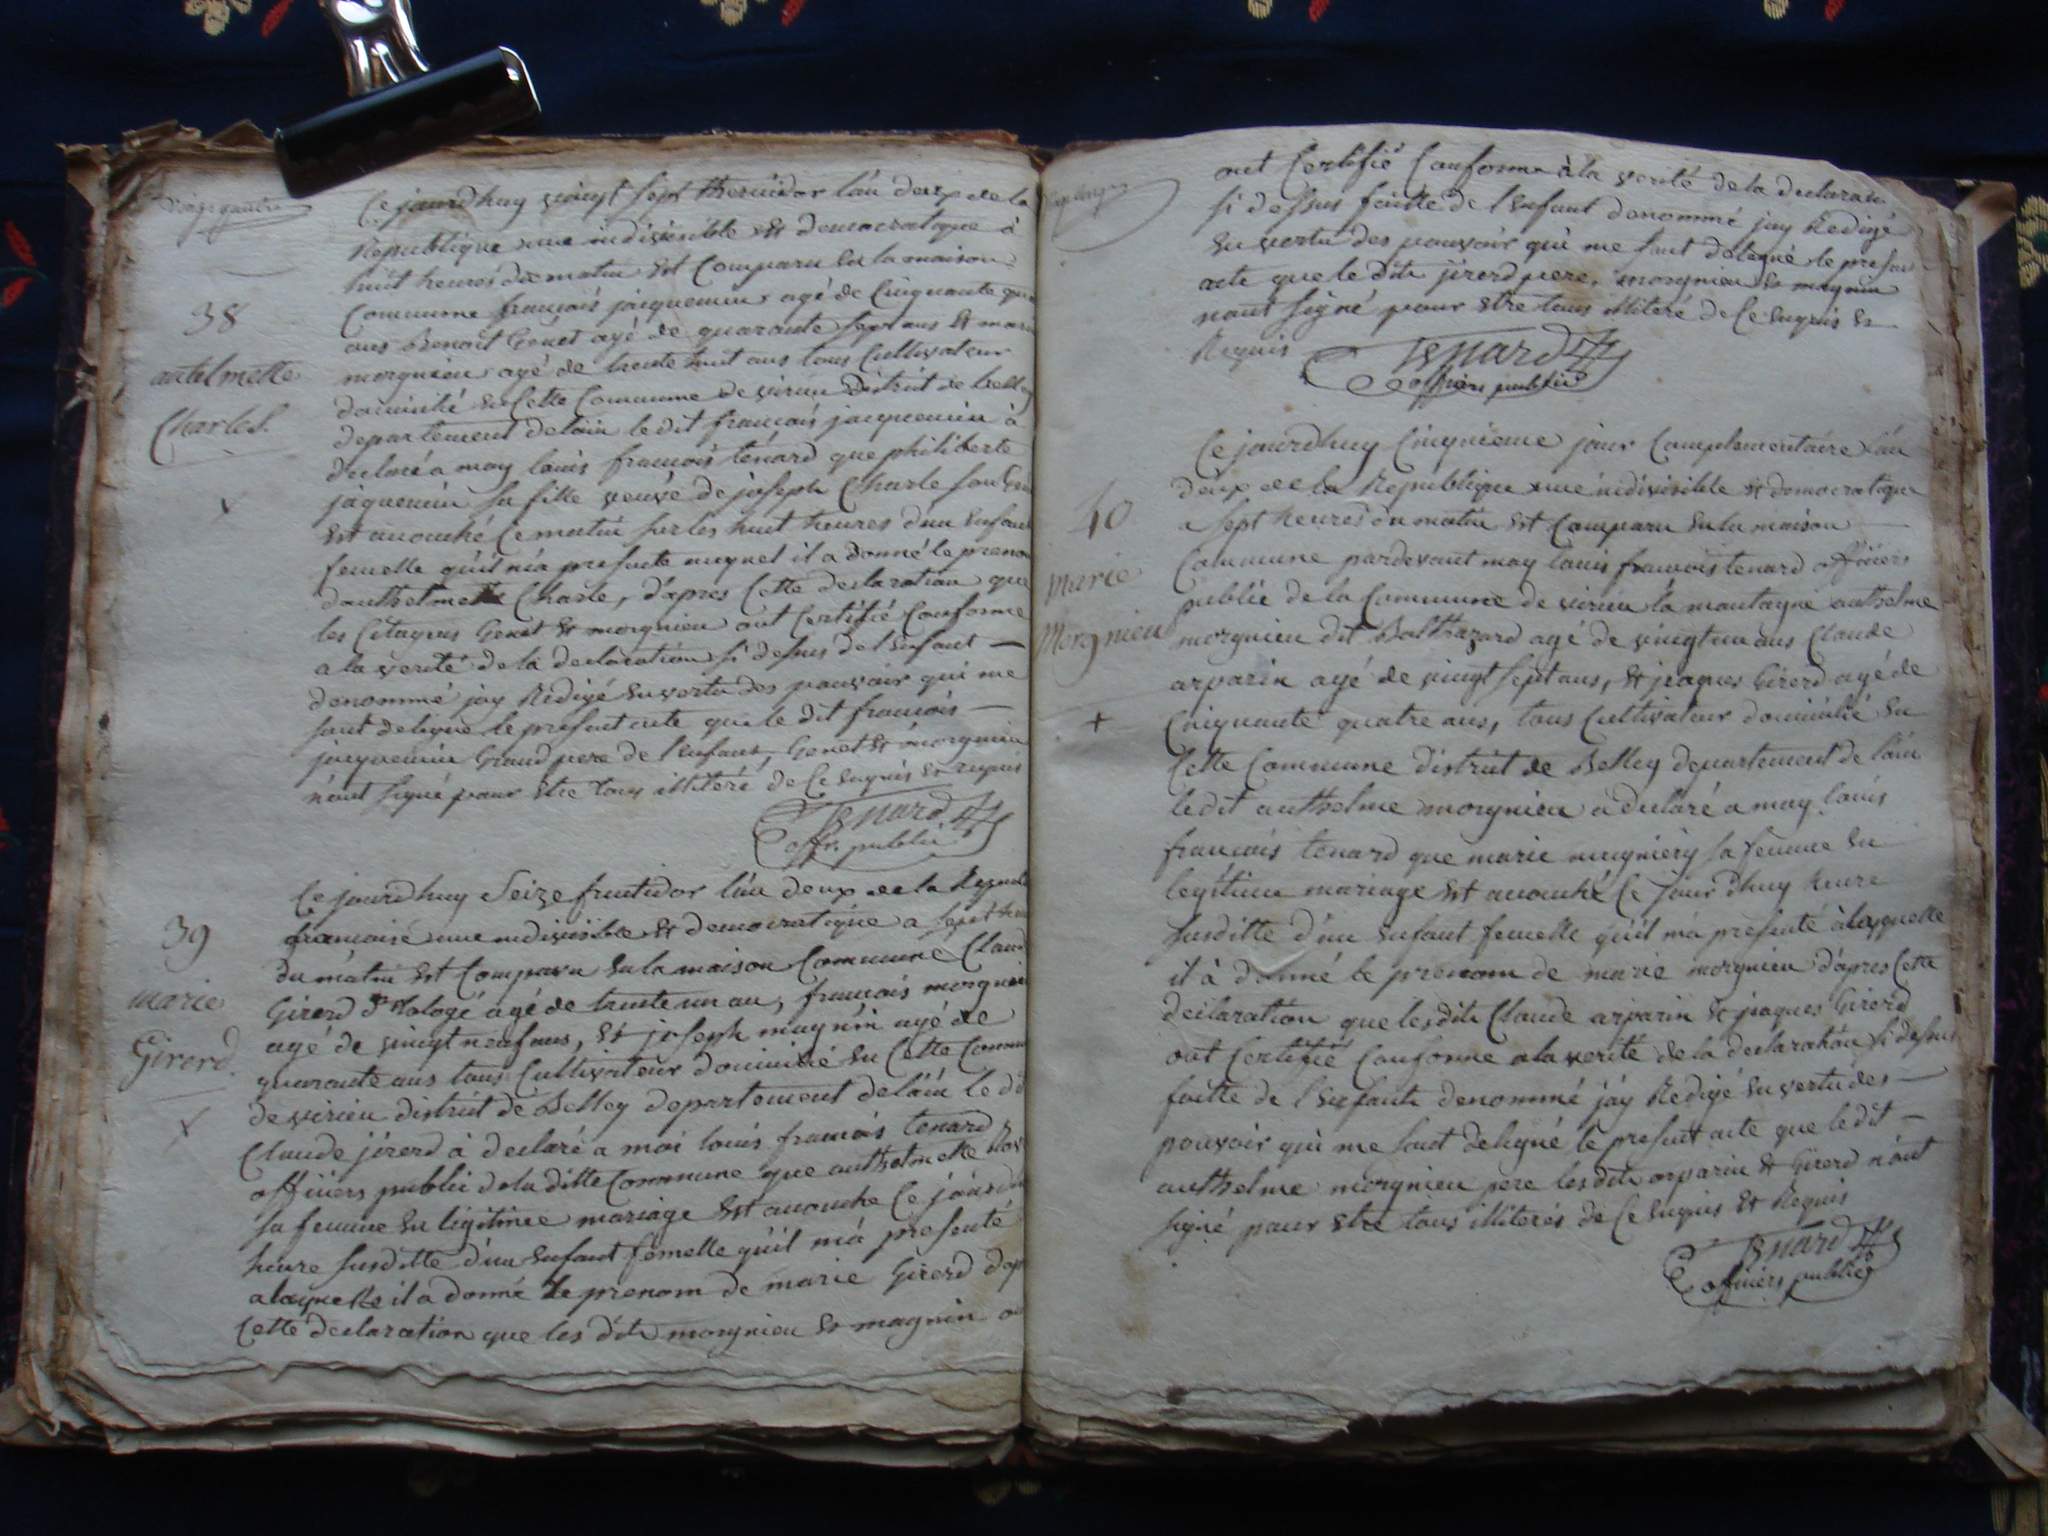 vingt quatre
38
antelmette
Charles.
Ce jourdhuy vingt sept thermidor lan deux de la
Republique une indivisible et democratique à
huit heures du matin est Comparu en la maison
Commune françois jaquemin agé de Cinquante
ans Benoit Genet agé de quarante sept ans et
morgnieu agé de trente huit ans tous Cultivateur
domicilié en Cette Commune de virieu district de belley
departement delain le dit françois jacquemin à
declaré a moy louis francois tenard que philiberte
jaquemin sa fille veuve de joseph Charle
est accouché Ce matin sur les huit heures dun enfant
femelle quil mà presenté auquel il a donné le prenom
danthelmette Charle, dapres Cette declaration que
les Citoyens Genet et morgnieu ont Certifié Conforme
a la verité de la declaration si dessus de lenfant
denommé jay Redigé en vertu des pouvoir qui me
sont delegué le present acte que le dit francois
jacquemin Grand pere de lenfant, Genet et morgnieu
nont signé pour etre tous illiteré de Ce enquis et requis
Tenard
offr. public
39
marie
Girerd.
Ce jourdhuy Seize fructidor làn deux de la
francaise une indivisible et democratique a sept
du matin est Comparu en la maison Commune
Girerd dt agé de trente un an, francois morgnieu
agé de vingt neuf ans, et joseph magnin agé de
quarante ans tous Cultivateur domicilié en Cette
de virieu district de Belley departement delain le dit
Claude jirerd à declaré a moi louis francois tenard
officiers public de la ditte Commune que anthelmette
sa femme en legitimee mariage est accouche Ce
heure susditte dun enfant femelle quil mà presenté
alaquelle il a donné le prenom de marie Girerd
Cette declaration que les dits morgnieu et magnin
ont Certifié Conforme à la verité de la
si dessus faitte de lenfant denommé jay Redigé
en vertu des pouvoir qui me sont delegué le
acte que le dit jirerd pere, morgnieu et magnin
nont signé pour etre tous illiteré de Ce enquis et
Requis
Tenard
officiers public
40
marie
Morgnieu
Ce jourdhuy Cinquieme jour Complementaire làn
deux de la Republique une indivisible et democratique
a sept heures du matin est Comparu en la maison
Commune pardevant moy louis francois tenard officiers
public de la Commune de virieu la montagne anthelme
morgnieu dit Balthazard agé de vingt un ans Claude
arparin agé de vingt sept ans, et jaques Girerd agé de
Cinquante quatre ans, tous Cultivateur domicilié en
Cette Commune district de Belley departement de lain
le dit anthelme morgnieu à declaré a moy louis
francois tenard que marie sa femme en
legitime mariage est accouché Ce jourdhuy heure
susditte dun enfant femelle quil mà presenté à laquelle
il à donné le prenom de marie morgnieu dapres Cette
declaration que les dits Claude arparin et jaques Girerd
ont Certifié Conforme a la verité de la declaration si dessus
faitte de lenfant denommé jày Redigé en vertu des
pouvoir qui me sont delegué le present acte que le dit
anthelme morgnieu pere les dits arparin et Girerd nont
signé pour etre tous illiterés de Ce enquis et Requis
Tenard
officiers public